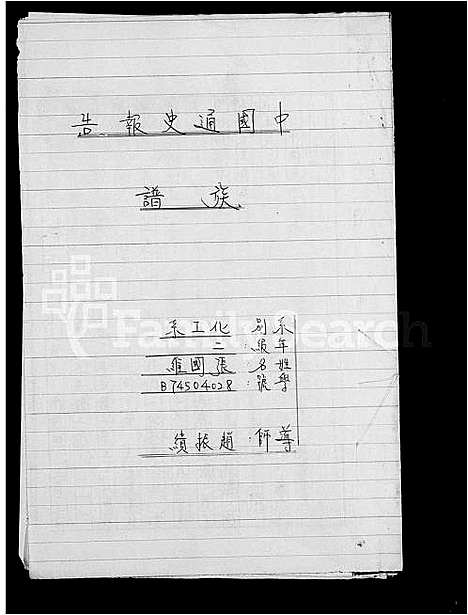 告報史通國中
譜族
系工化：別系
二：級年
維國張：名姓
B74504028：號學
績振趙：師導
FamilySearch